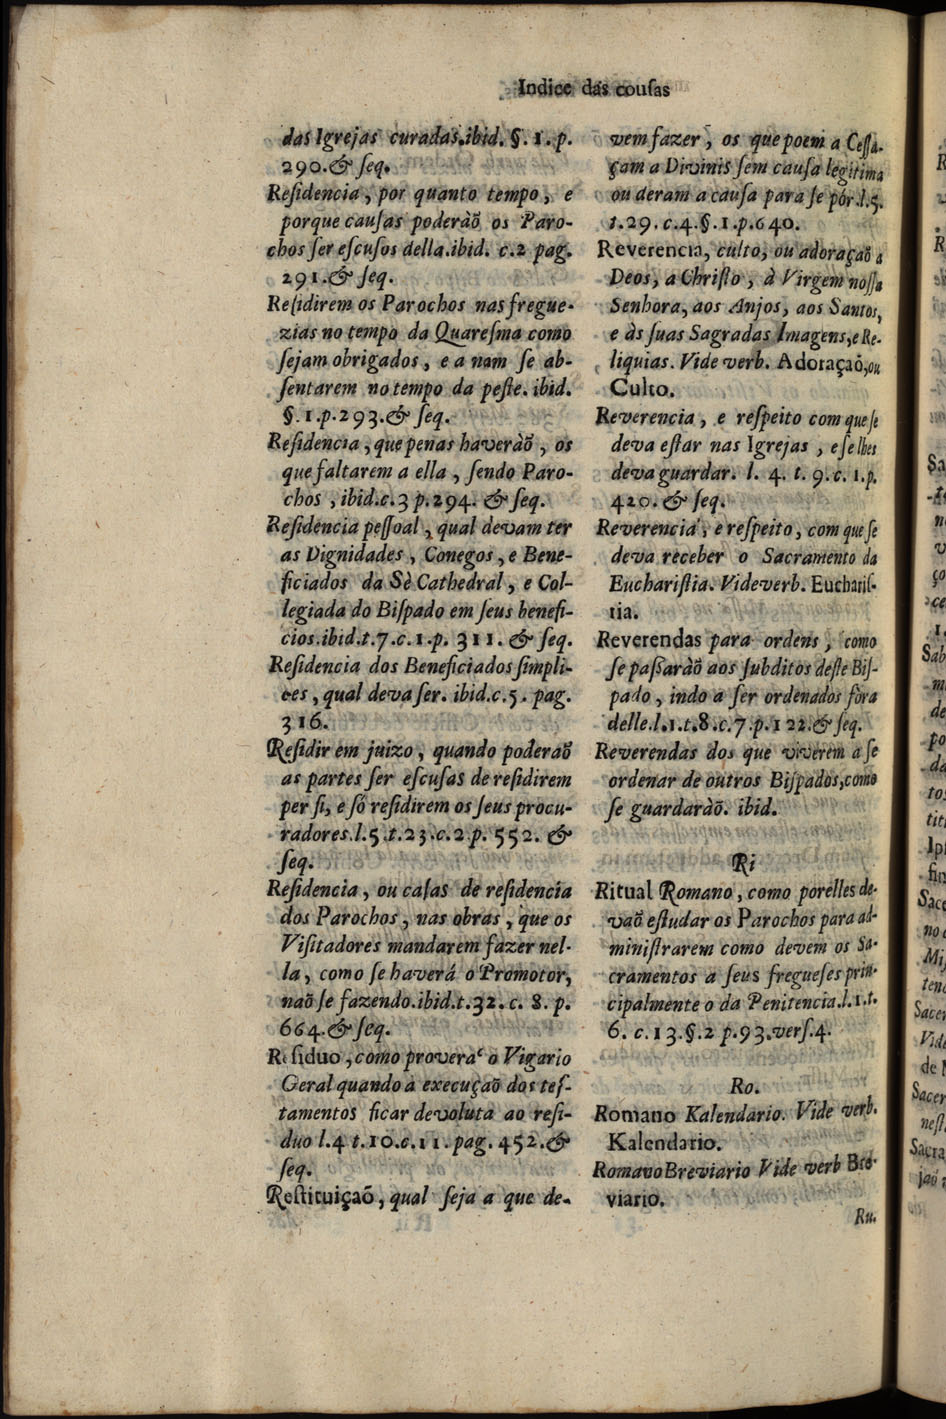 Indice das cousas
das Igrejas curadas.ibid. §. 1. p.
290.& ſeq.
Reſidencia, por quanto tempo, e
porque cauſas poderàõ os Paro-
chos ſer eſcuſos della.ibid. c.2 pag.
291.& ſeq.
Reſidirem os Parochos nas fregue-
zias no tempo da Quareſma como
ſejam obrigados, e a nam ſe ab-
ſentarem no tempo da peſte. ibid.
§. 1.p.293.& ſeq.
Reſidencia, que penas haveràõ, os
que faltarem a ella, ſendo Paro-
chos, ibid.c.3 p.294. & ſeq.
Reſidencia peſſoal, qual devam ter
as Dignidades, Conegos, e Bene-
ficiados da Sè Cathedral, e Col-
legiada do Biſpado em ſeus benefi-
cios.ibid.t.7.c.1.p. 311. & ſeq.
Reſidencia dos Beneficiados ſimpli-
ces, qual deva ſer. ibid.c.5. pag.
316.
Reſidir em juizo, quando poderaõ
as partes ſer eſcuſas de reſidirem
per ſi, e ſó reſidirem os ſeus procu-
radores.l.5.t.23.c.2.p. 552. &
ſeq.
Reſidencia, ou caſas de reſidencia
dos Parochos, nas obras, que os
Viſitadores mandarem fazer nel-
la, como ſe haverá o Promotor,
naõ ſe fazendo.ibid.t.32. c. 8. p.
664.& ſeq.
Reſiduo, como provera o Vigario
Geral quando a execuçaõ dos teſ-
tamentos ficar devoluta ao reſi-
duo l.4 t.10.c.11.pag. 452.&
ſeq.
Reſtituiçaõ, qual ſeja a que de-
vem fazer, os que poem a Ceſſa-
çam a Divinis ſem cauſa legitima
ou deram a cauſa para ſe pór.l.5.
t.29.c.4.§.1.p.640.
Reverencia, culto, ou adoraçaõ a
Deos, a Chriſto, à Virgem noſſa
Senhora, aos Anjos, aos Santos,
e às ſuas Sagradas Imagens, e Re-
liquias. Vide verb. Adoraçaõ, ou
Culto.
Reverencia, e reſpeito com que ſe
deva eſtar nas Igrejas, e ſe lhes
deva guardar. l. 4. t. 9.c. 1.p.
420. & ſeq.
Reverencia, e reſpeito, com que ſe
deva receber o Sacramento da
Euchariſtia. Vide verb. Euchariſ-
tia.
Reverendas para ordens, como
ſe paſſaràõ aos ſubditos deſte Biſ-
pado, indo a ſer ordenados fóra
delle.l.1.t.8.c.7.p.122.& ſeq.
Reverendas dos que viverem a ſe
ordenar de outros Biſpados, como
ſe guardaràõ. ibid.
Ri
Ritual Romano, como por elles de-
vaõ eſtudar os Parochos para ad-
miniſtrarem como devem os Sa-
cramentos a ſeus fregueſes prin-
cipalmente o da Penitencia.l.1.t.
6. c.13.§.2 p.93.verſ.4.
Ro.
Romano Kalendario. Vide verb.
Kalendario.
Romano Breviario Vide verb Bre-
viario.
Ru.